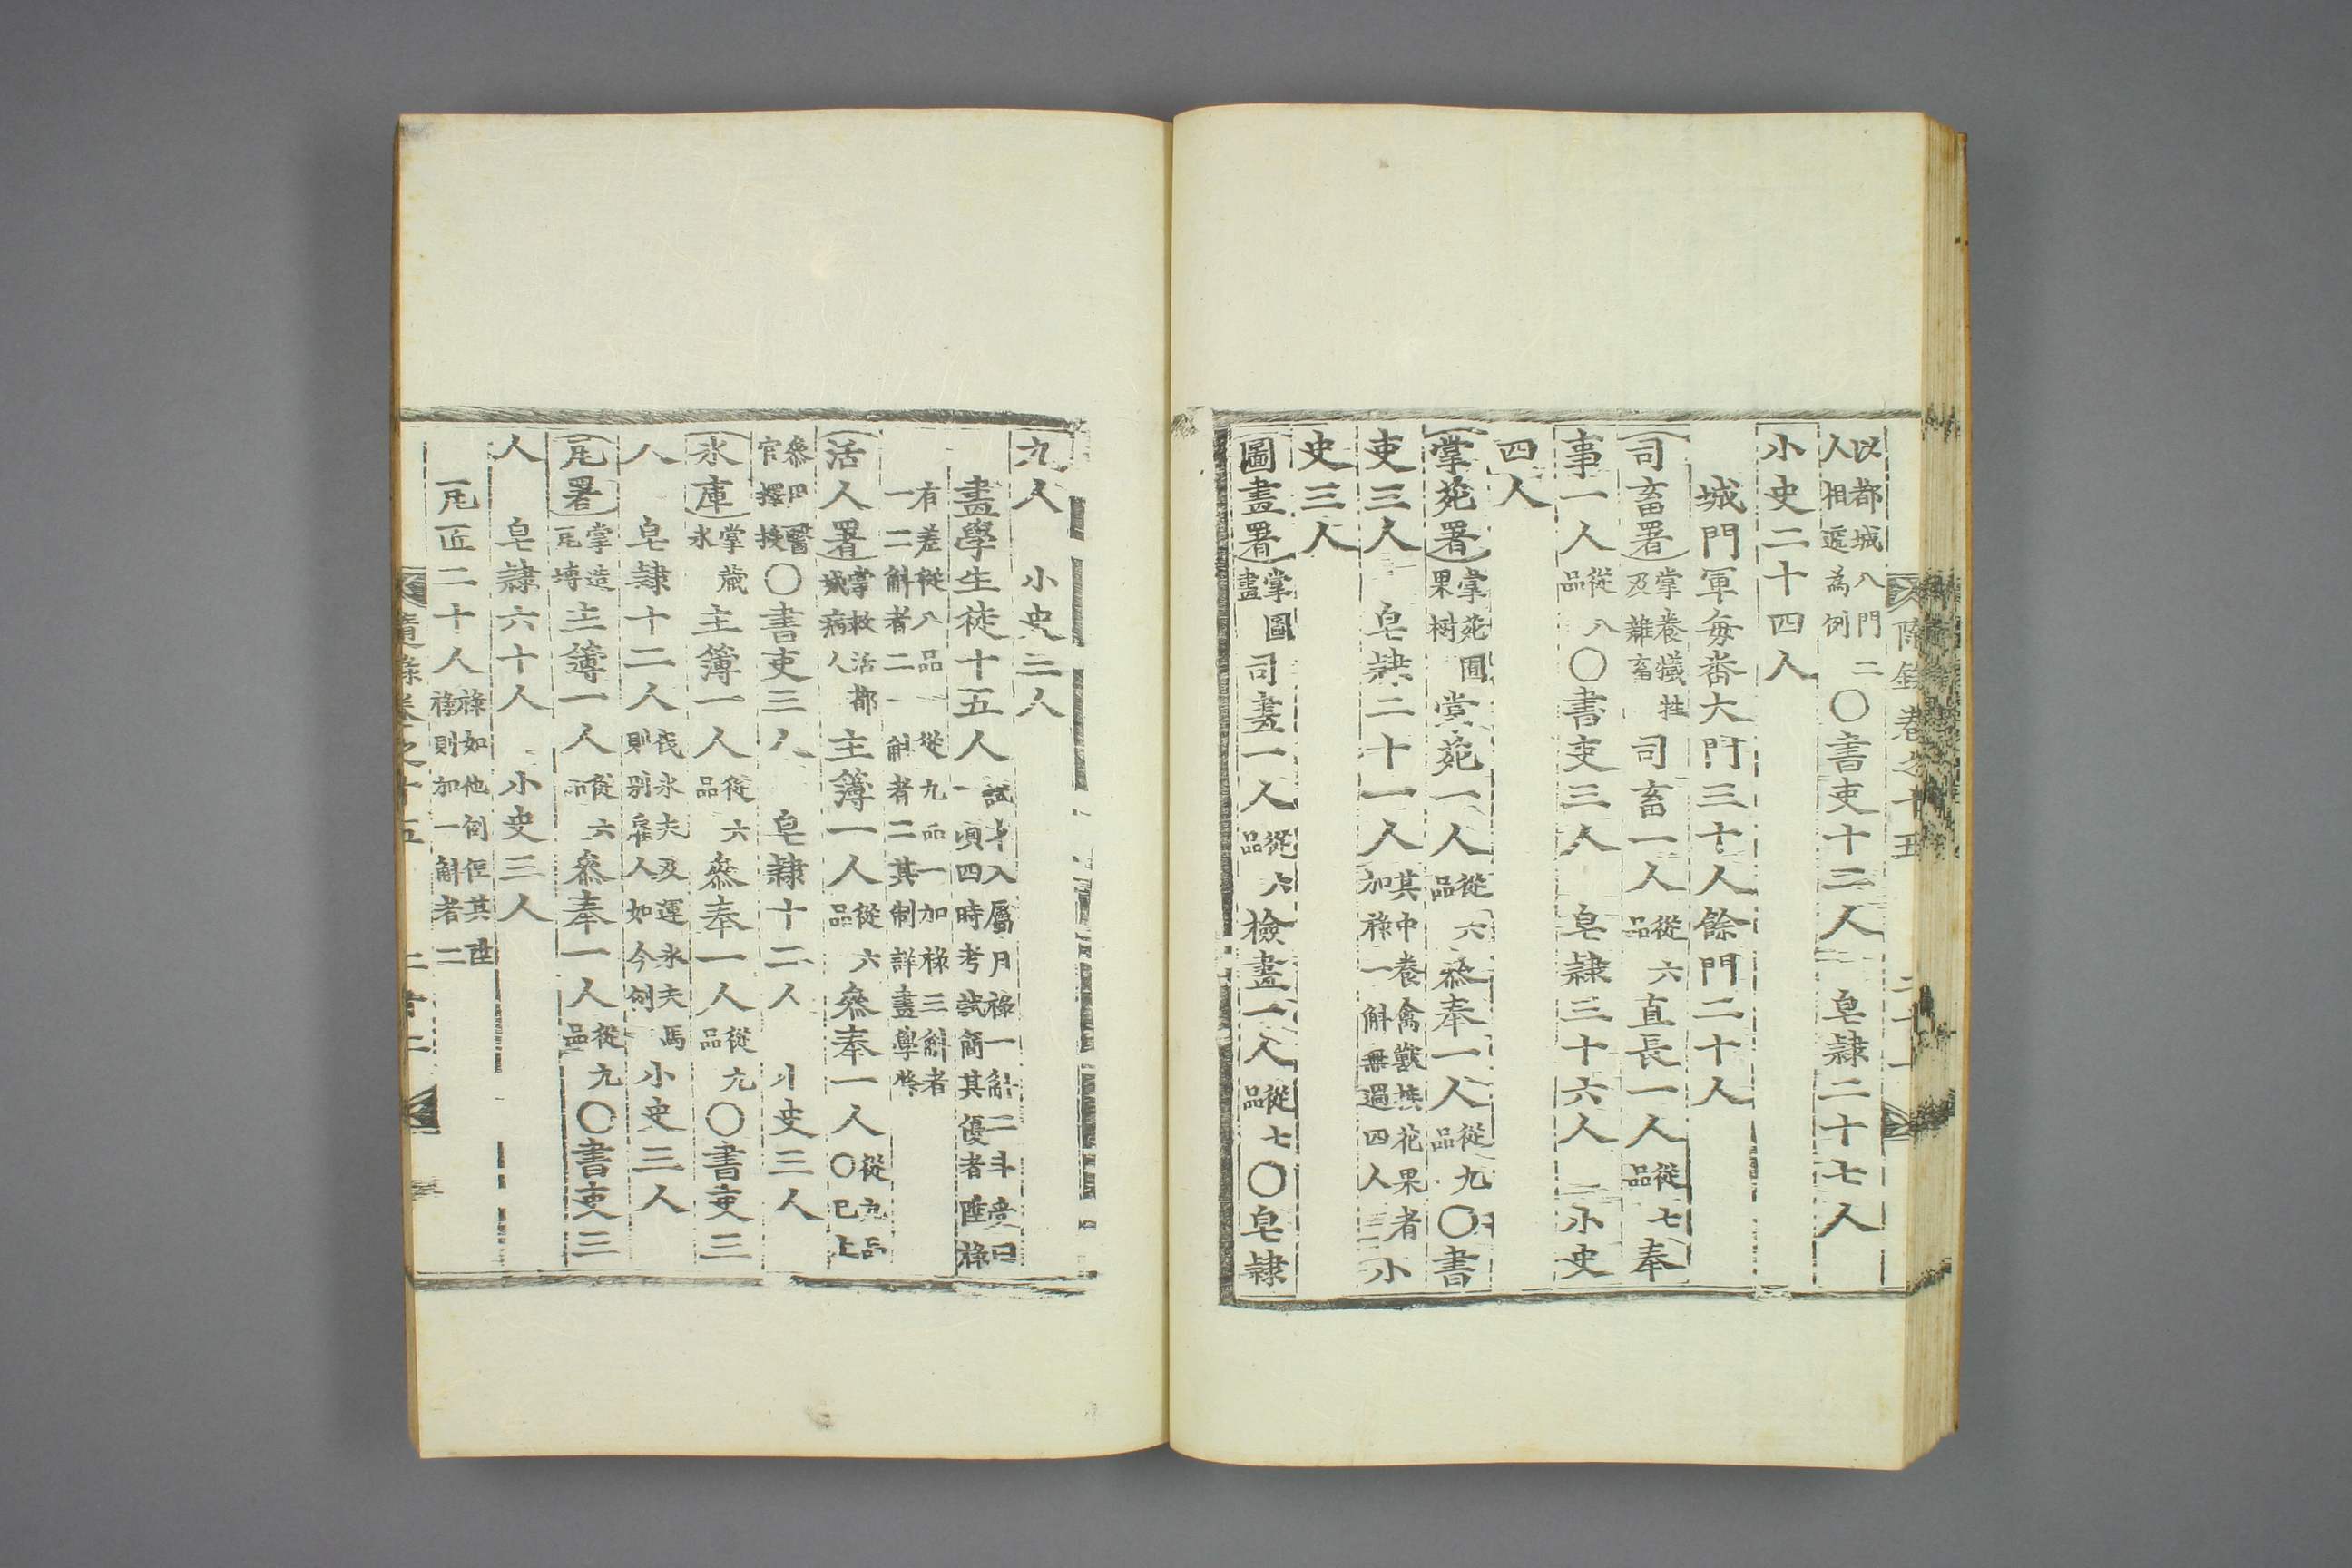 以都城八門二
人相遞為例〇書吏十二人 皂隷二十七人
小史二十四人
城門軍每番大門三十人餘門二十人
司畜署掌養犧牲及雜畜 司畜一人從六品 直長一人從七品 奉
事一人從八品〇書吏三人 皂隷三十六人 小史
四人
掌苑署掌苑囿果樹 掌苑一人從六品 叅奉一人從九品〇書
吏三人 皂隷二十一人其中養禽獸蒔花果者加祿一斛無過四人 小
史三人
圖畫署掌圖畫 司畫一人從六品 檢畫一人從七品〇皂隷
隨錄卷之十五
九人 小史三人
畫學生徒十五人試才入屬月祿一斛二斗 四時考試簡其優者陞祿
有差從八品 從九品一加祿三斛者
一二斛者二一斛者二其制詳畫學條
活人署掌救活都城病人 主簿一人從六品 叅奉一人從九品〇已上
叅用醫官擇授〇書吏三人 皂隷十二人 小史三人
氷庫掌藏氷 主簿一人從六品 叅奉一人從九品〇書吏三
人 皂隷十二人伐氷夫及運氷夫馬則別雇人如今例 小史三人
瓦署掌造瓦塼 主簿一人從六品 叅奉一人從九品〇書吏三
人 皂隷六十人 小史三人
瓦匠二十人祿如他例但其陞祿則加一斛者二
隨錄卷之十五 二十二